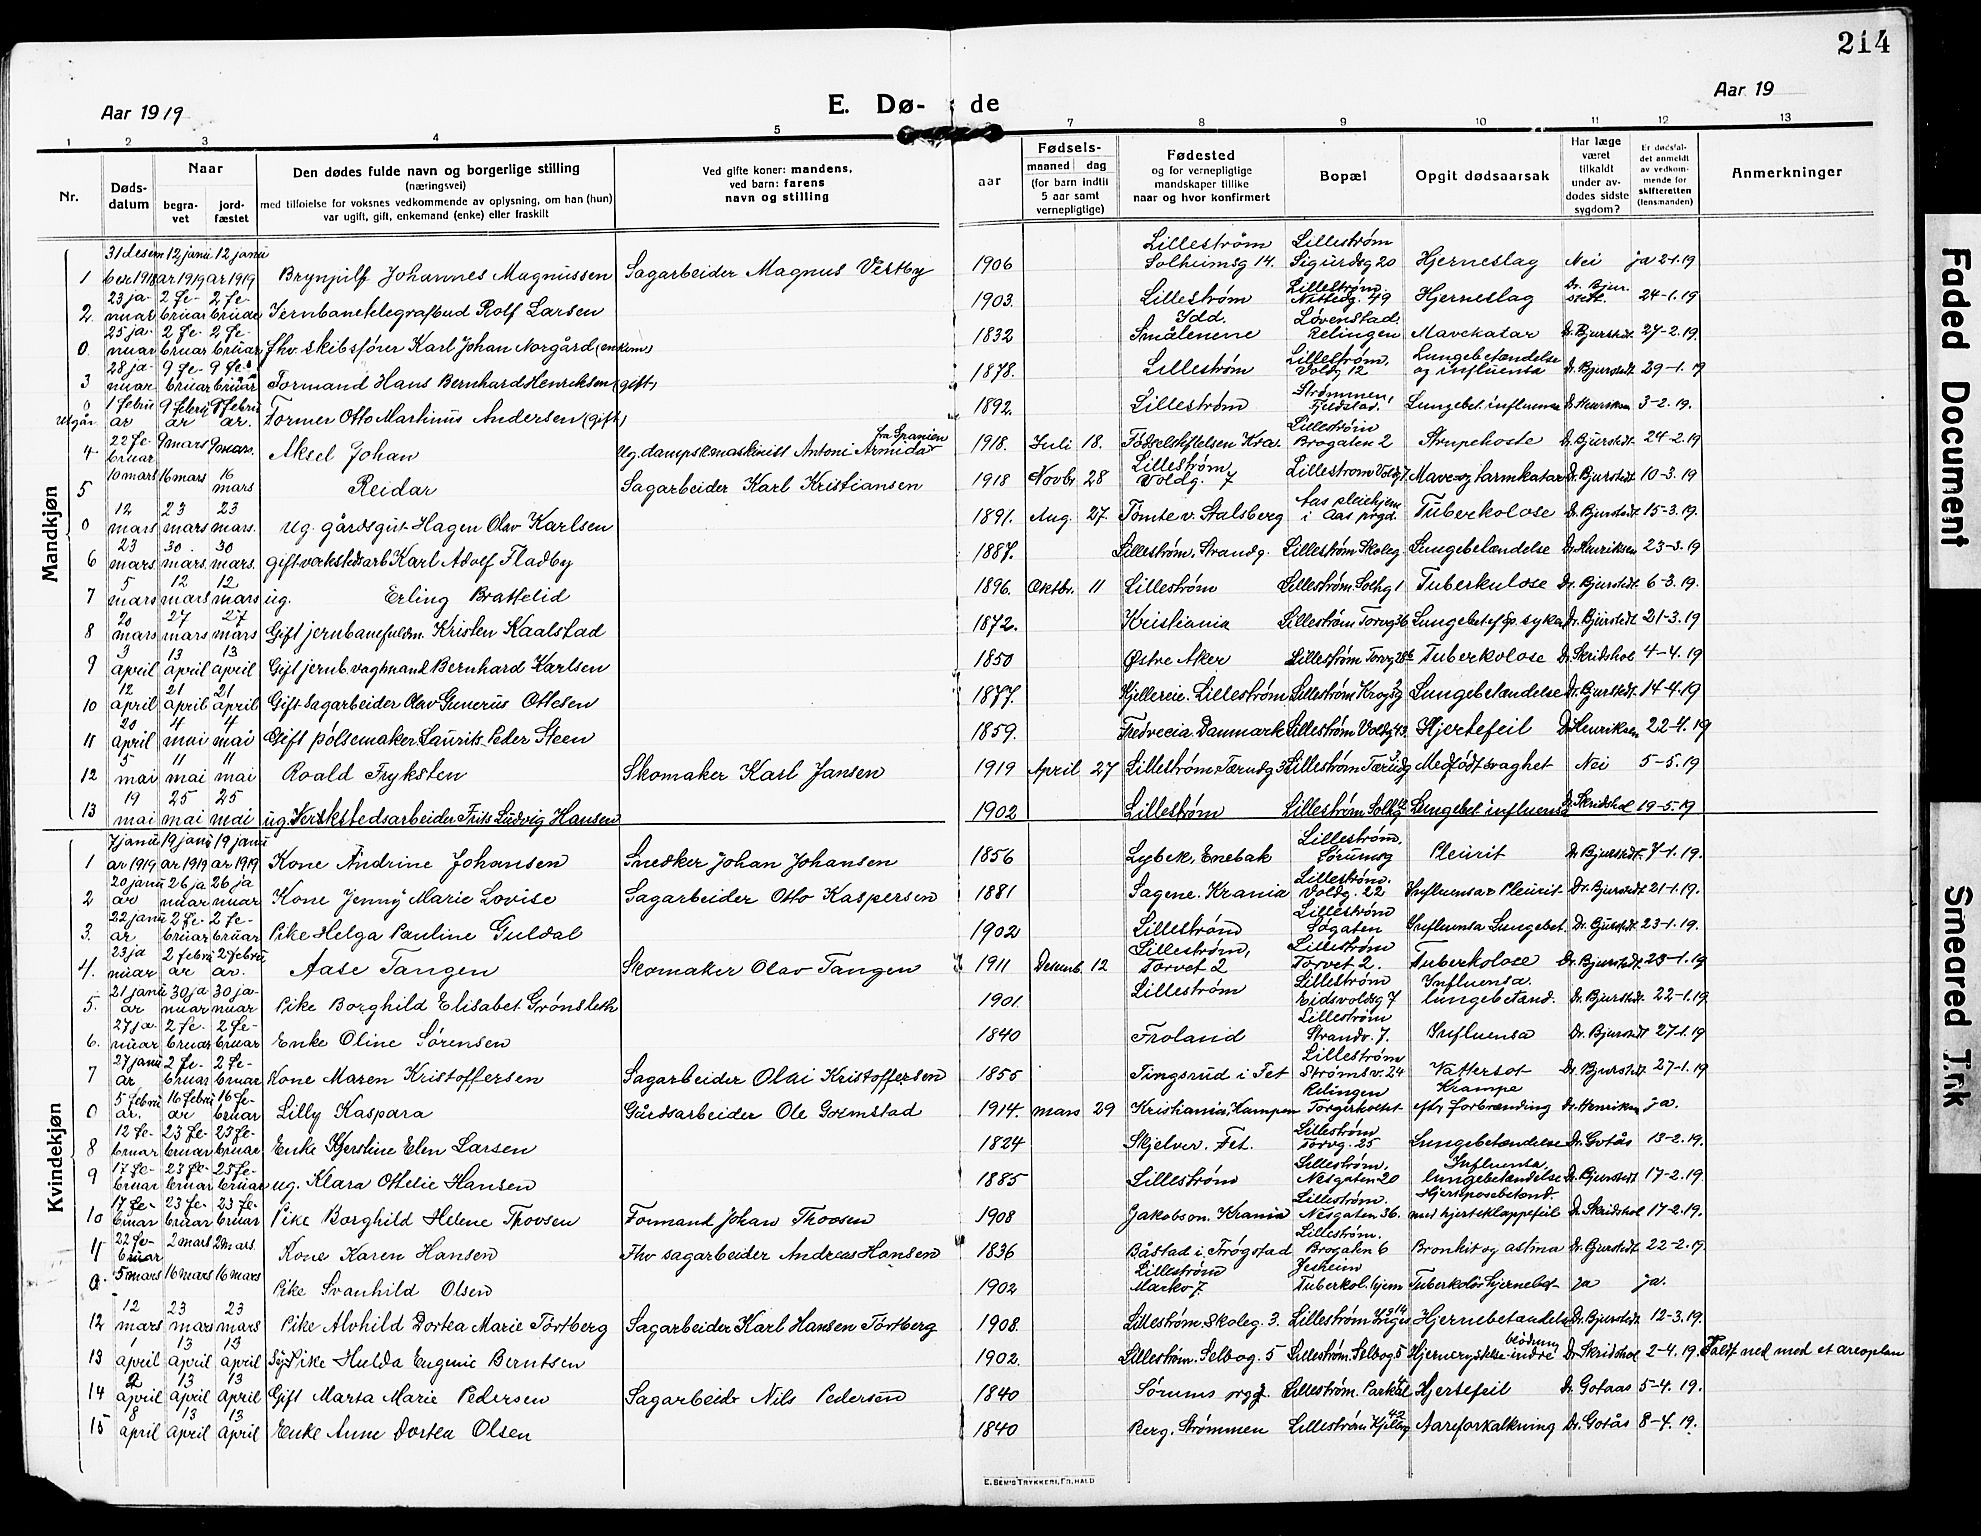 214
Aar 1919
E. Dø- de
Aar 19
1 2 3 4 5 7 8 9 10 11 12 13
Nr.
Døds-datum
Naar
begra-vet
jord-fæstet
Den dødes fulde navn og borgerlige stilling
(næringsvei)
med tilføielse for voksnes vedkommende av oplysning, om han (hun)
var ugift, gift, enkemand (enke) eller fraskilt
Ved gifte koner: mandens,
ved barn: farens
navn og stilling
aar
Fødsels-
maaned dag
(for barn indtil
5 aar samt
vernepligtige)
Fødested
og for vernepligtige
mandskaper tillike
naar og hvor konfirmert
Bopæl
Opgit dødsaarsak
Har læge
været
tilkaldt
under av-
dødes sidste
sygdom?
Er dødsfal-
det anmeldt
av vedkom-
mende for
skifteretten
(lensmanden)
Anmerkninger
Mandkjøn
1 31 desember 1918 12 januar 1919 12 januar 1919 Brynjulf Johannes Magnussen Sagarbeider Magnus Vestby 1906 Lillestrøm Solheimsg 14. Lillestrøm Sigurdsg 20 Hjerneslag Nei ja 2-1.19
2. 23 januar 2 februar 2 februar Jernbanetelegrafbud Rolf Larsen 1903. Lillestrøm Lillestrøm. Nittedg. 49 Hjerneslag 24-1.19
0. 25 januar 2 februar 2 februar fhv. skibsfører Karl Johan Norgård (enkem) 1832 Idd. Smålenene Løvenstad. Relingen Mavekatar Dr. Bjurstedt. 27-2.19.
3 28 januar 9 februar 9 februar Formand Hans Bernhard Henriksen (gift) 1878. Lillestrøm Lillestrøm, Voldg 12 Lungebetændelse og influensa Dr. Bjurstedt. 29-1.19
0 Utgår 1 februar 9 februar 9 februar. Former Otto Martinus Andersen (gift) 1892. Lillestrøm Strømmen, Fjeldstad. Lungebet. influensa Dr. Henriksen 3-2.19.
4 22 februar 9 mars 9 mars. Aksel Johan Ug. dampsk.maskinist Antoni Armida fra Spanien 1918. Juli 18. Fødselstiftelsen Kra. Lillestrøm Brogaten 2 Strupehoste Dr. Bjurstedt. 24-2.19
5 10 mars 16 mars 16 mars Reidar Sagarbeider Karl Kristiansen 1918 Novbr. 28 Lillestrøm, Voldg. 7 Lillestrøm Voldg 7 Mave og tarmkatar Dr. Bjurstedt 10-3.19
0 12 mars 23 mars 23 mars. ug. gårdsgut Hagen Olav Karlsen 1891. Aug. 27. Tømte v. Stalsberg Aas pleiehjem i Aas prgd. Tuberkolose Dr. Bjurstedt. 15-3.19.
6 23 mars 30. mars. 30 mars. gift verkstedsarb Karl Adolf Fladby 1887. Lillestrøm. Strandg. Lillestrøm Skoleg Lungebetændelse Dr. Henriksen 23-3.19
7 5 mars 12 mars 12 mars ug. Erling Brattelid 1896. Oktbr. 11 Lillestrøm Lillestrøm Solhg 1 Tuberkulose Dr. Bjurstedt. 6-3.19.
8 20 mars 27 mars 27 mars Gift jernbanefuldm. Kristen Kaalstad 1872. Kristiania Lillestrøm Torvg 36 Dr. Bjurstedt. 21-3.19
9 3 april 13 april 13 april Gift jernb. vagtmand Bernhard Karlsen 1850 Østre Aker Lillestrøm Torvg 28b Tuberkolose Dr. Skridshol 4-4.19
10 12 april 21 april 21 april Gift sagarbeider Olav Gunerus Ottesen 1877. Kjellereie. Lillestrøm Lillestrøm Krogdg Lungebetændelse Dr. Bjurstedt. 14-4.19
11 20 april 4 mai 4 mai Gift pølsemaker Laurits Peder Steen 1859. Fredrecia Danmark Lillestrøm Voldg 43. Hjertefeil Dr. Henriksen 22-4.19
12 5 mai 11 mai 11 mai Roald Tryksten Skomaker Karl Jansen 1919 April 27 Lillestrøm. Tærudg 3 Lillestrøm Tærudg 3 Medfødt svaghet Nei 5-5.19
13 19 mai 25 mai 25 mai ug. Verkstedsarbeider Frits Ludvig Hansen 1902 Lillestrøm Lillestrøm Solhg Lungebet. influensa Dr. Skridshol 19-5.19
Kvindekjøn
1 7 januar 1919 19 januar 1919 19 januar 1919 Kone Andrine Johansen Snedker Johan Johansen 1856 Lybek, Enebak Lillestrøm, Sørumsg Pleurit Dr. Bjurstedt. 7-1.19.
2 20 januar 26 januar 26 januar Kone Jenny Marie Lovise Sagarbeider Otto Kaspersen 1881 Sagene. Krania Lillestrøm. Voldg. 22 Influensa & Pleurit Dr. Bjurstedt 21-1.19.
3. 22 januar 2 februar 2 februar Pike Helga Pauline Guldal 1902 Lillestrøm Lillestrøm Søgaten Influensa Lungebet. Dr. Bjurstedt 23-1.19.
4. 23 januar 2 februar 2 februar. Aase Tangen Skomaker Olav Tangen 1911 Desemb. 12 Lillestrøm, Torvet 2 Lillestrøm Torvet 2. Tuberkolose Dr. Bjurstedt. 23-1.19
5. 21 januar 30 januar 30 januar Pike Borghild Elisabet Grønsleth 1901. Lillestrøm Lillestrøm Eidsvoldsg 7 Influensa. lungebetænd. Dr. Bjurstedt. 22-1.19
6. 27 januar 2 februar 2 februar Enke Oline Sørensen 1840 Froland Lillestrøm Strandv. 7. Influensa Dr. Bjurstedt. 27-1.19
7 27 januar 2 februar 2 februar Kone Maren Kristoffersen Sagarbeider Olai Kristoffersen 1855 Tingsrud i Fet Lillestrøm Strømsv. 24 Vattersot Dr. Bjurstedt 27-1.19
0 5 februar. 16 februar 16 februar Lilly Kaspara Gårdsarbeider Ole Gormstad 1914. mars 29 Kristiania, Kampen Relingen Krampe eftr. forbrænding Dr. Henriksen ja.
8 12 februar 23 februar 23 februar Enke Kjerstine Elen Larsen 1824 Skjelver. Fet. Lillestrøm Torvg. 25 Lungebetændelse Dr. Gotås 13-2.19.
9 17 februar 23 februar 23 februar ug. Klara Ottelie Hansen 1885 Lillestrøm Lillestrøm, Nesgaten 20 Influensa lungebetændelse Dr. Bjurstedt 17-2.19.
10 17 februar 23 februar 23 februar Pike Borghild Helene Thovsen Formand Johan Thovsen 1908 Jakobson. Krania Lillestrøm. Nesgaten 36. Hjerteposebetænd. med hjerteklappefeil Dr. Skridshol 17-2.19.
11 22 februar 2 mars 2 mars. Kone Karen Hansen Fhv sagarbeider Andreas Hansen 1836 Båstad i Trøgstad Lillestrøm. Brogaten 6 Bronkit og astma Dr. Bjurstedt. 22-2.19
0. 5 mars 16 mars 16 mars Pike Svanhild Olsen 1902 Lillestrøm Markv 7. Jesheim Tuberkol. hjem Tuberkoløs hjernebet. ja ja.
12 12 mars 23 mars 23 mars Pike Alvhild Dortea Marie Tortberg Sagarbeider Karl Hansen Tortberg 1908. Lillestrøm. Skoleg. 3. Lillestrøm Hjernebetændelse Dr. Bjurstedt. 12-3.19.
13 1 april 13 april 13 april Sy Pike Hulda Eugenie Berntsen 1902. Lillestrøm. Selbog. 5 Lillestrøm. Selbog 5 Hjernerystelse indre blødning Dr. Skridshol 2-4.19. Faldt ned med et areoplan
14 2 april 13 april 13 april Gift Marta Marie Pedersen Sagarbeidr Nils Pedersen 1840 Sørums prgj. Lillestrøm. Parkal Hjertefeil Dr. Gotaas 5-4.19.
15 8 april 13 april 13 april Enke Anne Dortea Olsen 1840 Berg. Strømmen Lillestrøm Aareforkalkning Dr. Gotås 8-4.19.
E. SEM'S TRYKKERI, FR.HALD
Faded Document
Smeared T.rik